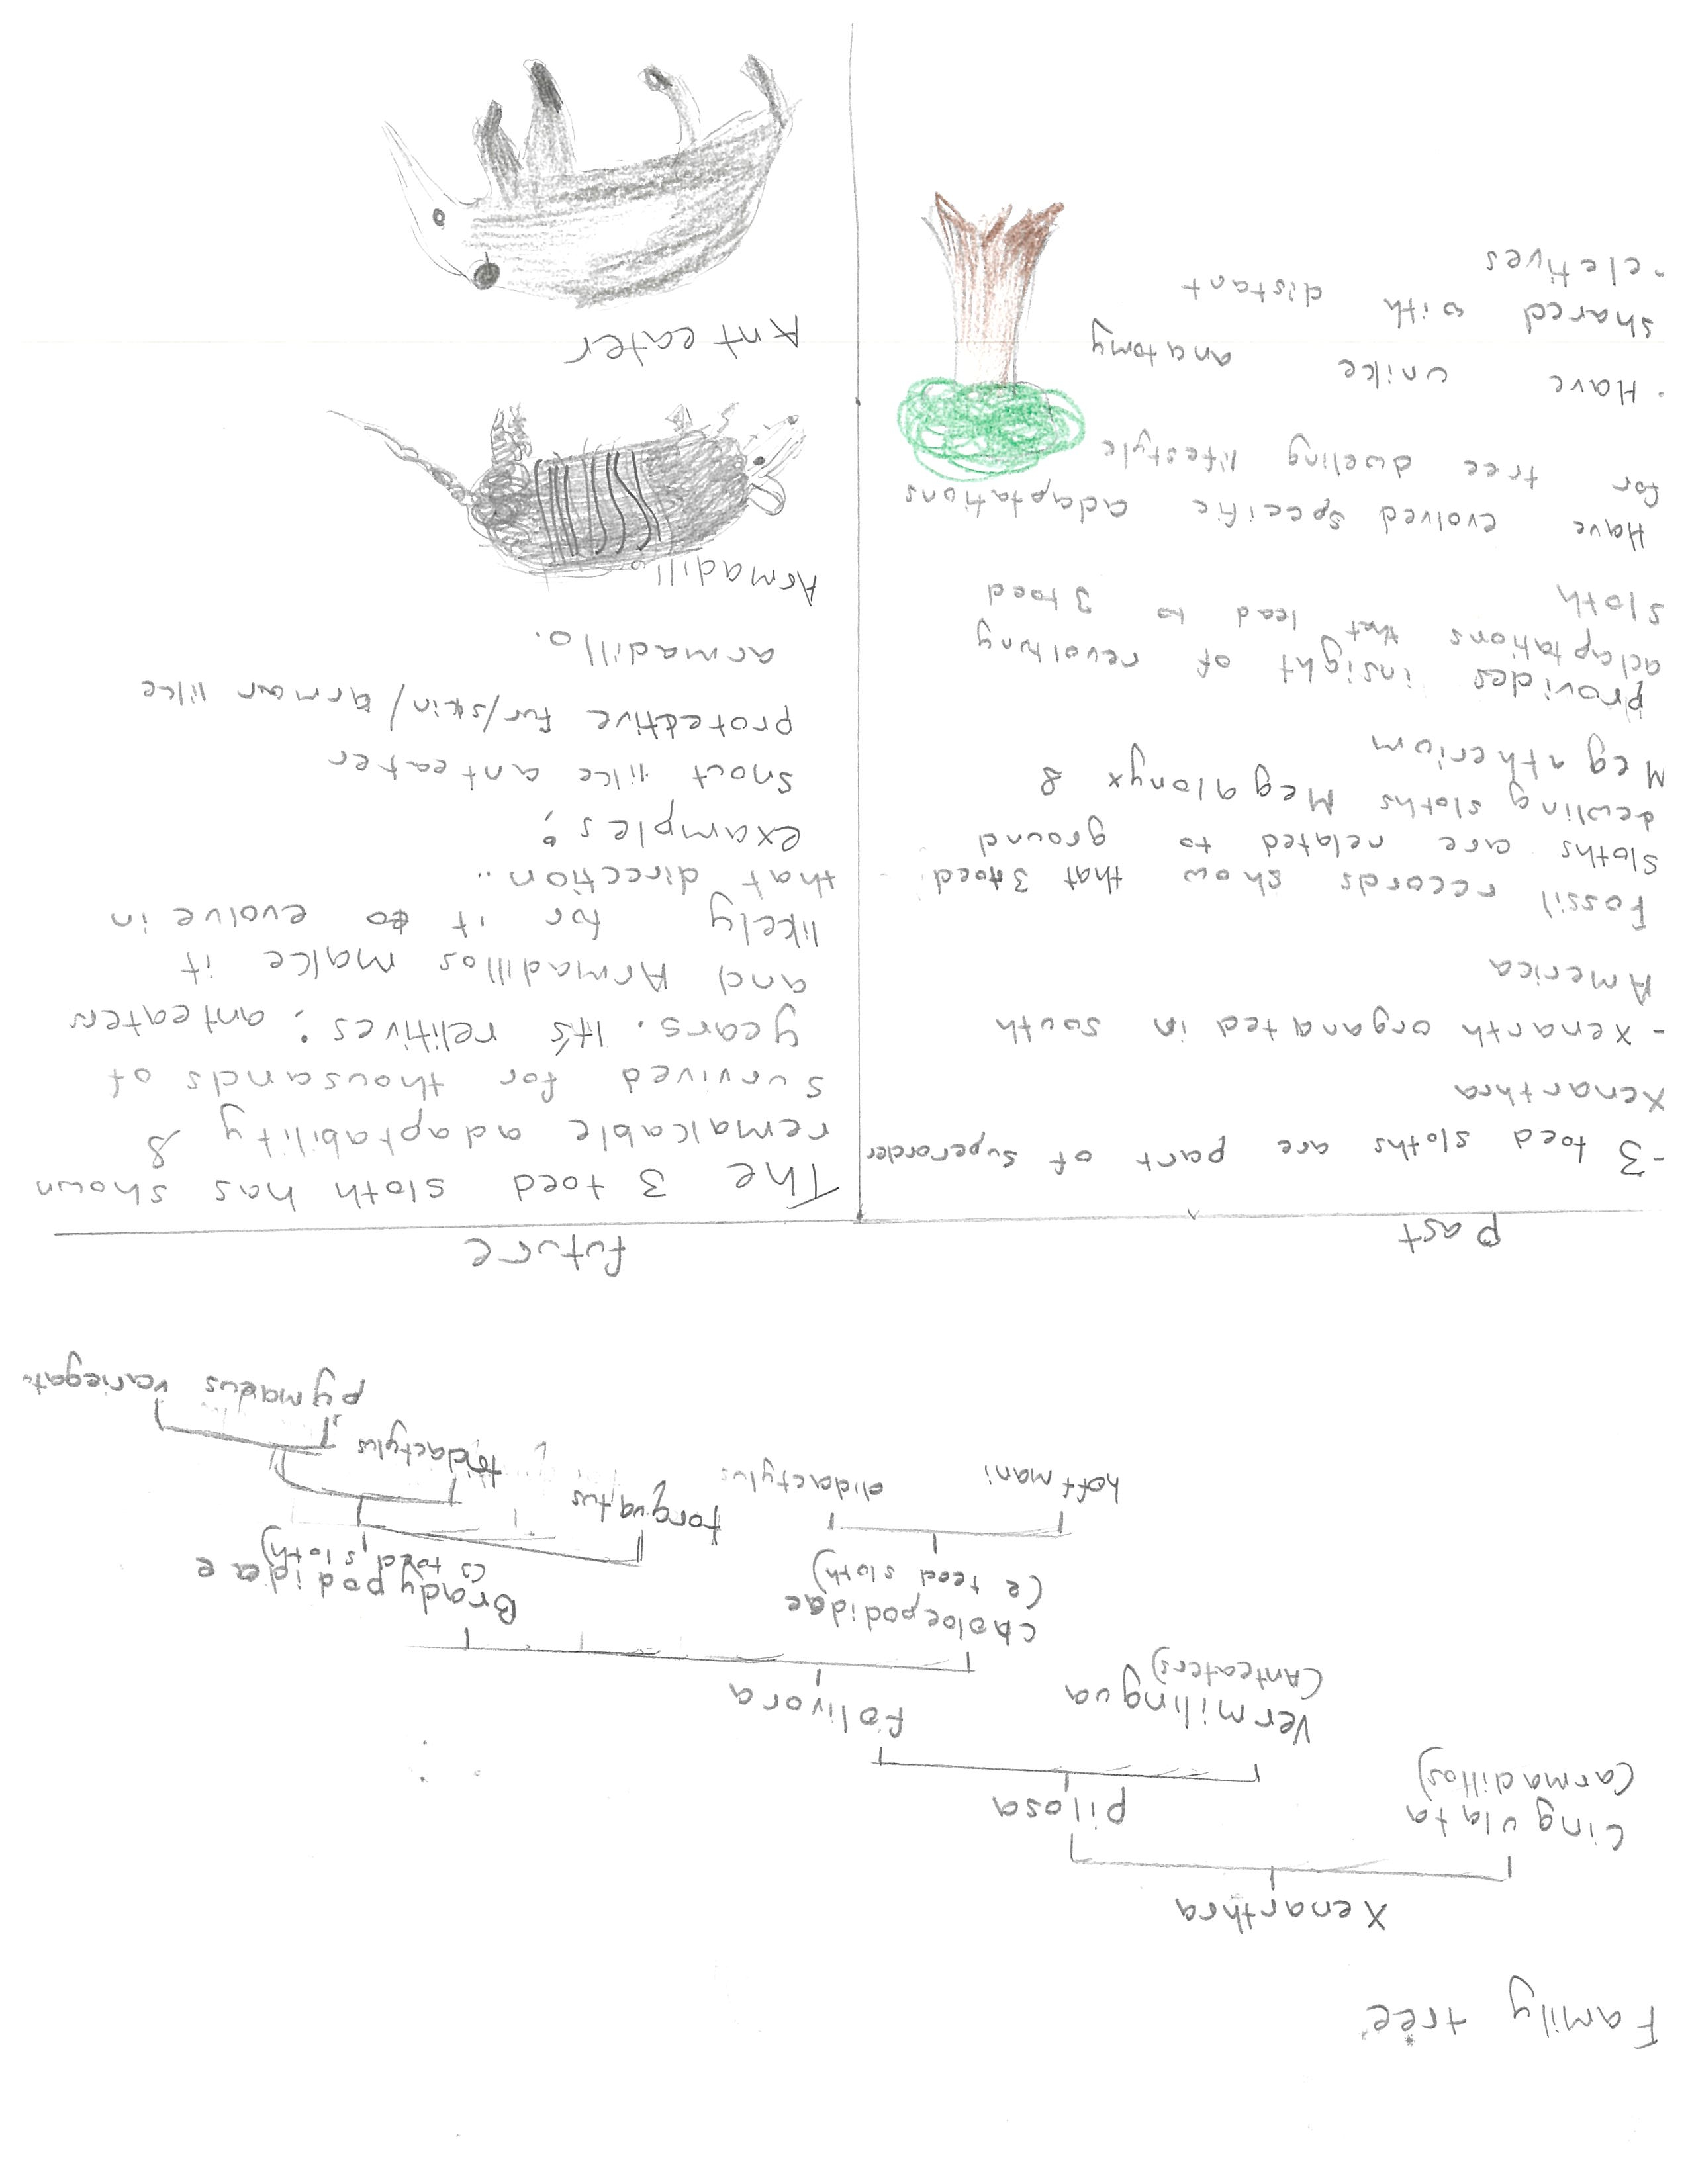 Family tree
Xenarthra
Cingulata
(armadillos)
Pilosa
Vermilingua
(Anteaters)
Folivora
choloepodidae
(2 toed sloth)
Bradypodidae
(3 toed sloth)
hoffmani
didactylus
torquatus
tridactylus
pymaeus variegat
Past
-3 toed sloths are part of superorder
Xenarthra
- Xenarth organated in south
America
Fossil records show that 3 toed
sloths are related to ground
dewling sloths Megalonyx &
Megatherium
provides insight of revoltiny
adaptations that lead to 3 toed
sloth
Have evolved specific adaptations
for tree dweling lifestyle
· Have unike anatomy
shared with distant
cletives
future
The 3 toed sloth has shown
remalcable adaptability &
survived for thousands of
years. It's relitives: anteaters
and Armadillos make it
likely for it to evolve in
that direction...
examples:
snout like ant eater
protective fur/skin/armar like
armadillo.
Armadillo
Ant eater